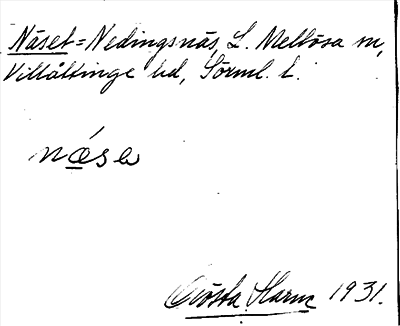 Näset = Nedingsnäs, L. Mellösa sn,
Villåttinge hd, Sörml. l.
næse
Gösta Harm 1931.